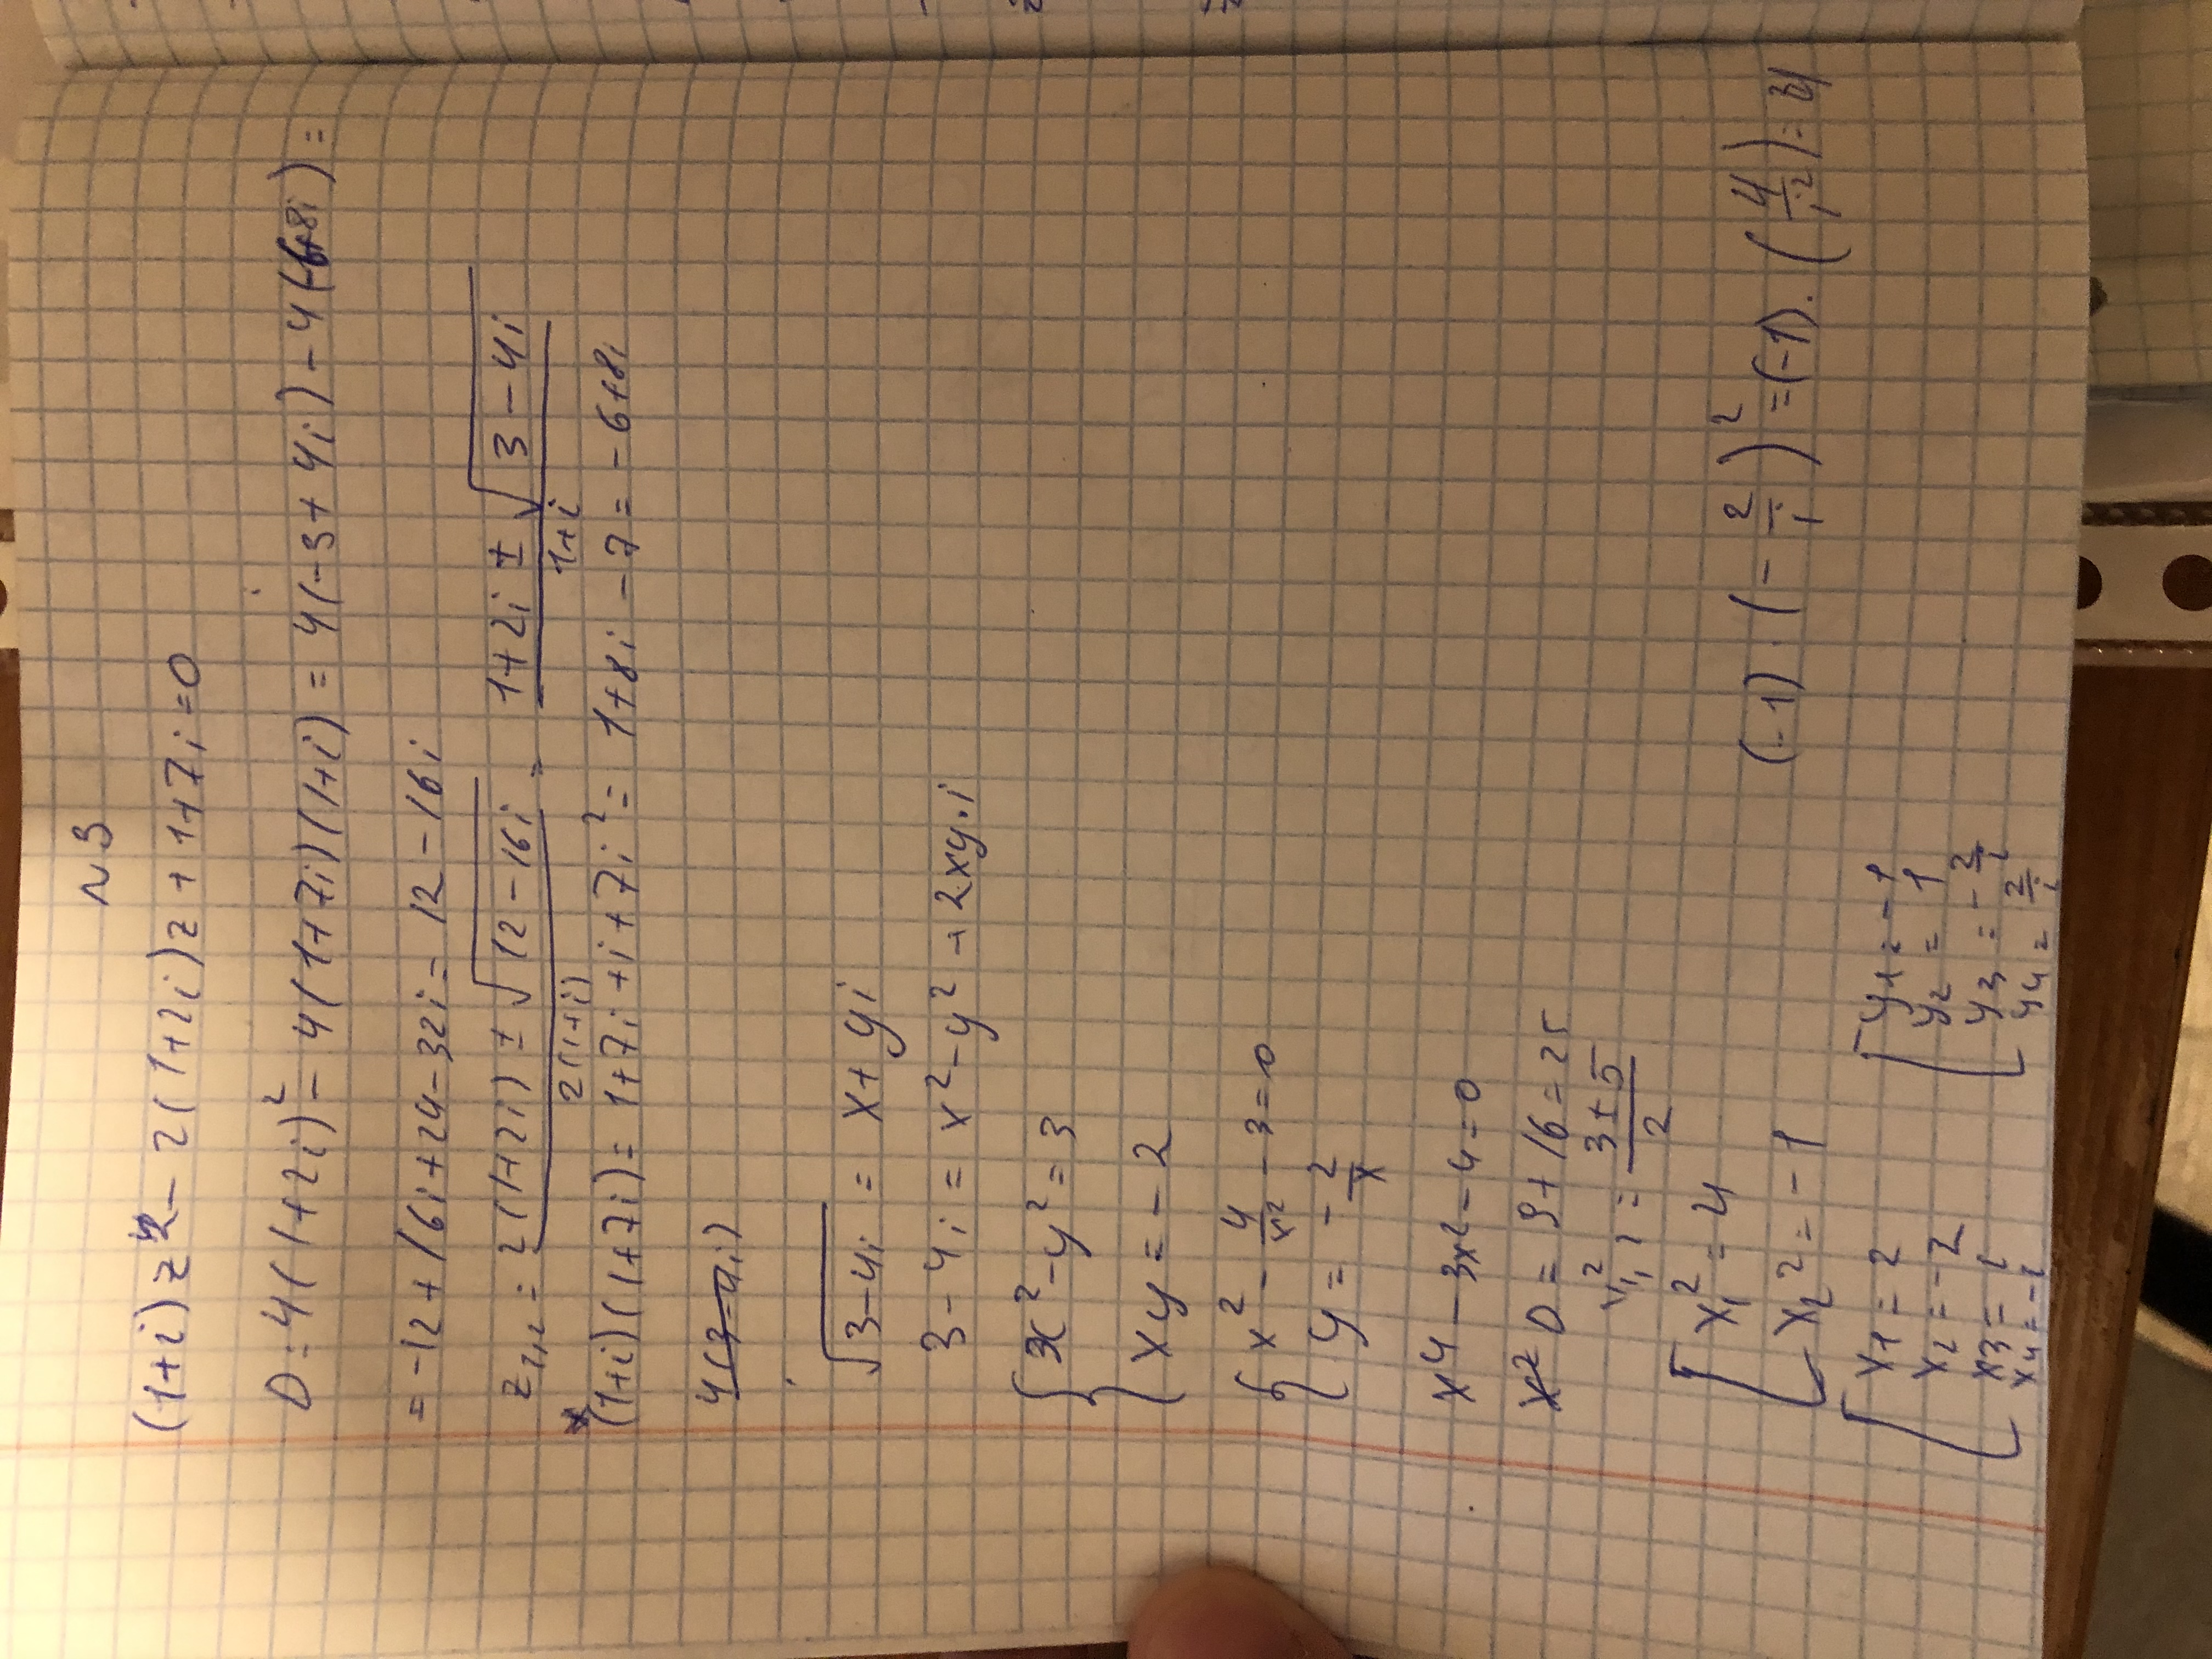 N3
(1+i)z² - 2(1+2i)z + 1+7i = 0
D = 4(1+2i)² - 4(1+7i)(1+i) = 4(-3+4i) - 4(-6+8i) =
= -12+16i+24-32i = 12-16i
z₁,₂ = (2(1+2i) ± √(12-16i)) / (2(1+i)) = (1+2i ± √(3-4i)) / (1+i)
(1+i)(1+7i) = 1+7i+i+7i² = 1+8i-7 = -6+8i
4(3-4i)
√(3-4i) = x+yi
3-4i = x²-y²+2xy·i
x²-y² = 3
xy = -2
x² - 4/x² - 3 = 0
y = -2/x
x⁴ - 3x² - 4 = 0
x² D = 9+16 = 25
x²₁,₂ = (3±5)/2
x₁² = 4
x₂² = -1
(-1)·(-2/i)² = (-1)·(4/i²) =
x₁ = 2 y₁ = -1
x₂ = -2 y₂ = 1
x₃ = i y₃ = -2/i
x₄ = -i y₄ = 2/i